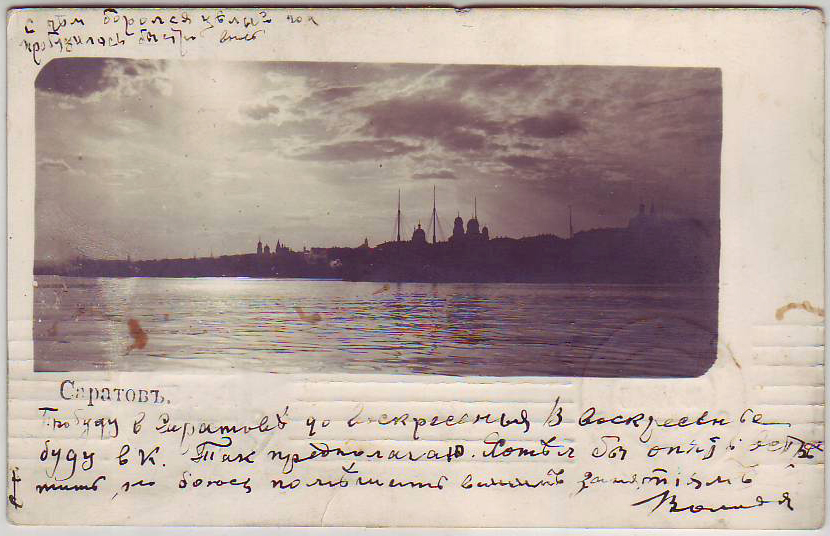 с чем боролся целый год
пробудилось быстро вновь
Саратовъ.
Пробуду в Саратовѣ до воскресенья В воскресенье
буду в К. Так предполагаю. Хотѣл бы опять
но боюсь помѣшать вашимъ занятіямъ
Володя